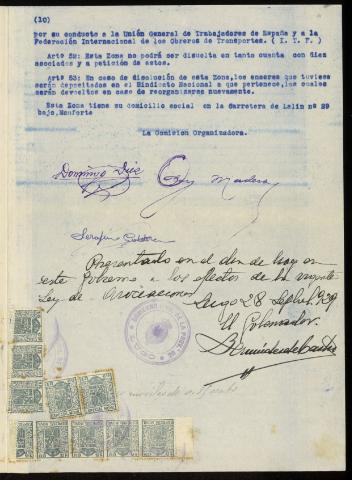 (10)
por su conducto a la Unión General de Trabajadores de España y a la
Federación Internacional de los Obreros de Transportes. ( I. T. F. )
Artº 52: Esta Zona no podrá ser disuelta en tanto cuanto con diez
asociados y a petición de estos.
Artº 53: En caso de disolución de esta Zona, los enseres que tuviese
serán depositados en el Sindicato Nacional a que pertenece, los cuales
serán devueltos en caso de reorganizarse nuevamente.
Esta Zona tiene su domicilio social en la Carretera de Lalín nº 29
bajo, Monforte
La Comision Organizadora.
Domingo Diez
Serafin
Presentado en el día de hoy en
este Gobierno a los efectos de la vigente
Ley de Asociaciones
Lugo 28 Sepbre 929
El Gobernador.